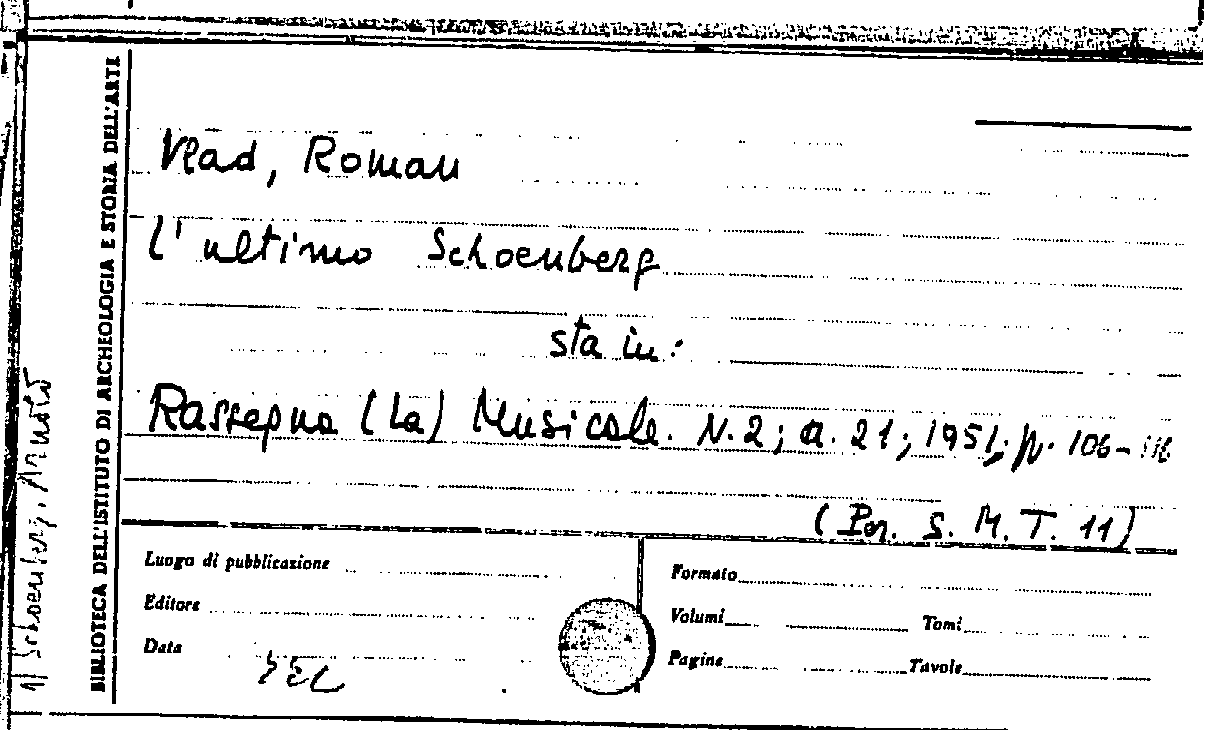 BIBLIOTECA DELL'ISTITUTO DI ARCHEOLOGIA E STORIA DELL'ARTE
1) Schoenberg, Arnold
Vlad, Roman
L'ultimo Schoenberg
sta in:
Rassegna (La) Musicale. N.2; a. 21; 1951; p. 106-116
(Per. S. M. T. 11)
Luogo di pubblicazione
Editore
Data
Formato
Volumi Tomi
Pagine Tavole